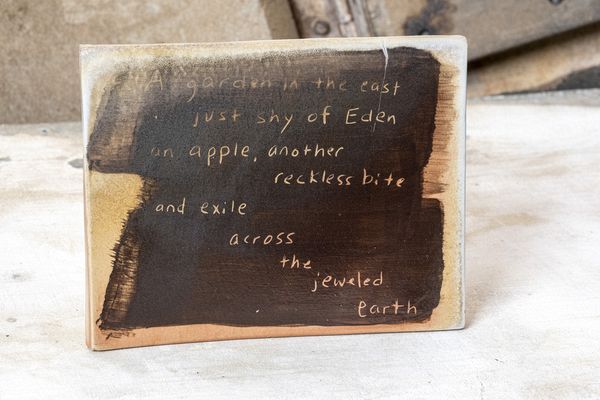 A garden in the east
just shy of Eden
an apple, another
reckless bite
and exile
across
the
jeweled
earth